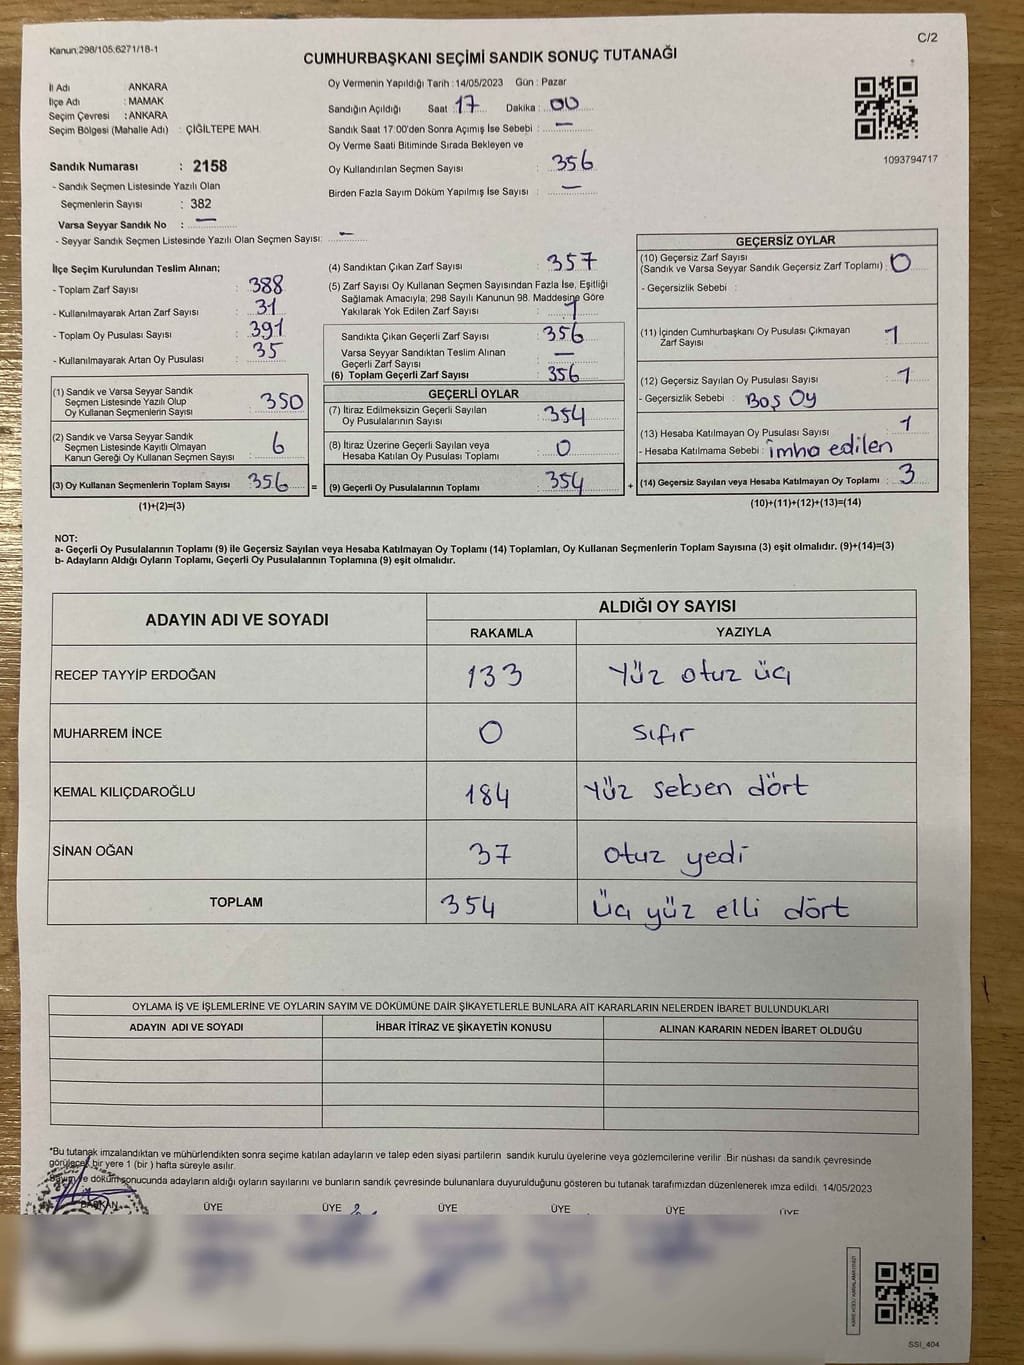 Kanun:298/105;6271/18-1
C/2
CUMHURBAŞKANI SEÇİMİ SANDIK SONUÇ TUTANAĞI
İl Adı : ANKARA
İlçe Adı : MAMAK
Seçim Çevresi : ANKARA
Seçim Bölgesi (Mahalle Adı) : ÇİĞİLTEPE MAH.
Oy Vermenin Yapıldığı Tarih : 14/05/2023 Gün : Pazar
Sandığın Açıldığı Saat : 17 Dakika : 00
Sandık Saat 17:00'den Sonra Açımış İse Sebebi : —
Oy Verme Saati Bitiminde Sırada Bekleyen ve
Oy Kullandırılan Seçmen Sayısı : 356
Birden Fazla Sayım Döküm Yapılmış İse Sayısı : —
1093794717
Sandık Numarası : 2158
- Sandık Seçmen Listesinde Yazılı Olan
Seçmenlerin Sayısı : 382
Varsa Seyyar Sandık No : —
- Seyyar Sandık Seçmen Listesinde Yazılı Olan Seçmen Sayısı: —
İlçe Seçim Kurulundan Teslim Alınan;
- Toplam Zarf Sayısı : 388
- Kullanılmayarak Artan Zarf Sayısı : 31
- Toplam Oy Pusulası Sayısı : 391
- Kullanılmayarak Artan Oy Pusulası : 35
(1) Sandık ve Varsa Seyyar Sandık
Seçmen Listesinde Yazılı Olup
Oy Kullanan Seçmenlerin Sayısı : 350
(2) Sandık ve Varsa Seyyar Sandık
Seçmen Listesinde Kayıtlı Olmayan
Kanun Gereği Oy Kullanan Seçmen Sayısı : 6
(3) Oy Kullanan Seçmenlerin Toplam Sayısı : 356
(1)+(2)=(3)
(4) Sandıktan Çıkan Zarf Sayısı : 357
(5) Zarf Sayısı Oy Kullanan Seçmen Sayısından Fazla İse, Eşitliği
Sağlamak Amacıyla; 298 Sayılı Kanunun 98. Maddesine Göre
Yakılarak Yok Edilen Zarf Sayısı : 1
Sandıkta Çıkan Geçerli Zarf Sayısı : 356
Varsa Seyyar Sandıktan Teslim Alınan
Geçerli Zarf Sayısı : —
(6) Toplam Geçerli Zarf Sayısı : 356
GEÇERLİ OYLAR
(7) İtiraz Edilmeksizin Geçerli Sayılan
Oy Pusulalarının Sayısı : 354
(8) İtiraz Üzerine Geçerli Sayılan veya
Hesaba Katılan Oy Pusulası Toplamı : 0
= (9) Geçerli Oy Pusulalarının Toplamı : 354 +
GEÇERSİZ OYLAR
(10) Geçersiz Zarf Sayısı
(Sandık ve Varsa Seyyar Sandık Geçersiz Zarf Toplamı) : 0
- Geçersizlik Sebebi :
(11) İçinden Cumhurbaşkanı Oy Pusulası Çıkmayan
Zarf Sayısı : 1
(12) Geçersiz Sayılan Oy Pusulası Sayısı : 1
- Geçersizlik Sebebi : Boş Oy
(13) Hesaba Katılmayan Oy Pusulası Sayısı : 1
- Hesaba Katılmama Sebebi : imha edilen
(14) Geçersiz Sayılan veya Hesaba Katılmayan Oy Toplamı : 3
(10)+(11)+(12)+(13)=(14)
NOT:
a- Geçerli Oy Pusulalarının Toplamı (9) ile Geçersiz Sayılan veya Hesaba Katılmayan Oy Toplamı (14) Toplamları, Oy Kullanan Seçmenlerin Toplam Sayısına (3) eşit olmalıdır. (9)+(14)=(3)
b- Adayların Aldığı Oyların Toplamı, Geçerli Oy Pusulalarının Toplamına (9) eşit olmalıdır.
ADAYIN ADI VE SOYADI
ALDIĞI OY SAYISI
RAKAMLA YAZIYLA
RECEP TAYYİP ERDOĞAN 133 Yüz otuz üç
MUHARREM İNCE 0 Sıfır
KEMAL KILIÇDAROĞLU 184 Yüz seksen dört
SİNAN OĞAN 37 otuz yedi
TOPLAM 354 Üç yüz elli dört
OYLAMA İŞ VE İŞLEMLERİNE VE OYLARIN SAYIM VE DÖKÜMÜNE DAİR ŞİKAYETLERLE BUNLARA AİT KARARLARIN NELERDEN İBARET BULUNDUKLARI
ADAYIN ADI VE SOYADI İHBAR İTİRAZ VE ŞİKAYETİN KONUSU ALINAN KARARIN NEDEN İBARET OLDUĞU
*Bu tutanak imzalandıktan ve mühürlendikten sonra seçime katılan adayların ve talep eden siyasi partilerin sandık kurulu üyelerine veya gözlemcilerine verilir .Bir nüshası da sandık çevresinde
görülecek bir yere 1 (bir ) hafta süreyle asılır.
Sayım ve döküm sonucunda adayların aldığı oyların sayılarını ve bunların sandık çevresinde bulunanlara duyurulduğunu gösteren bu tutanak tarafımızdan düzenlenerek imza edildi. 14/05/2023
BAŞKAN ÜYE ÜYE ÜYE ÜYE ÜYE ÜYE
SSI_404